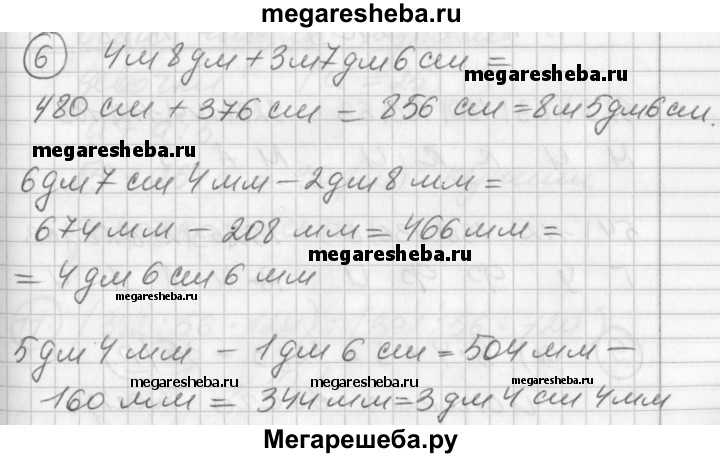 megaresheba.ru
6 4м 8дм + 3м7дм6см =
megaresheba.ru
480 см + 376 см = 856 см = 8м5дм6см.
megaresheba.ru
6дм7см 4мм - 2дм8мм =
674мм - 208 мм = 466мм =
megaresheba.ru
= 4дм 6см 6мм
megaresheba.ru
5дм 4мм - 1дм 6см = 504мм -
megaresheba.ru megaresheba.ru megaresheba.ru
160 мм = 344мм = 3дм 4см 4мм
Мегарешеба.ру